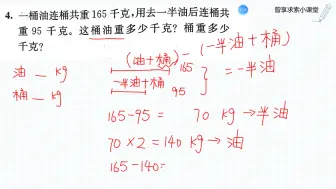 智享求索小课堂
4. 一桶油连桶共重 165 千克,用去一半油后连桶共
重 95 千克。这桶油重多少千克? 桶重多少
千克?
(油+桶) - (一半油+桶)
油 — kg
165
= 一半油
桶 — kg
一半油+桶
95
165-95= 70 kg → 半油
70 × 2 = 140 kg → 油
165-140=